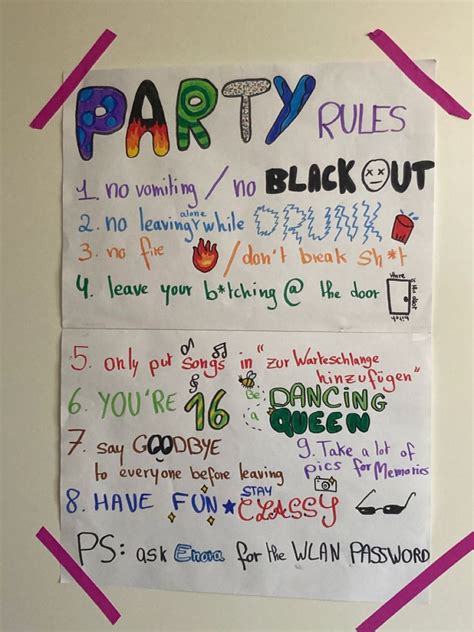 PARTY RULES
1. no vomiting / no BLACK OUT
2. no leaving alone while DRUNK
3. no fire / don't break sh*t
4. leave your b*tching @ the door
5. only put songs in "zur Warteschlange
hinzufügen"
6. YOU'RE 16 Be a DANCING
QUEEN
7. say GOODBYE
to everyone before leaving
9. Take a lot of
pics for Memories
8. HAVE FUN STAY CLASSY
PS: ask Enora for the WLAN PASSWORD